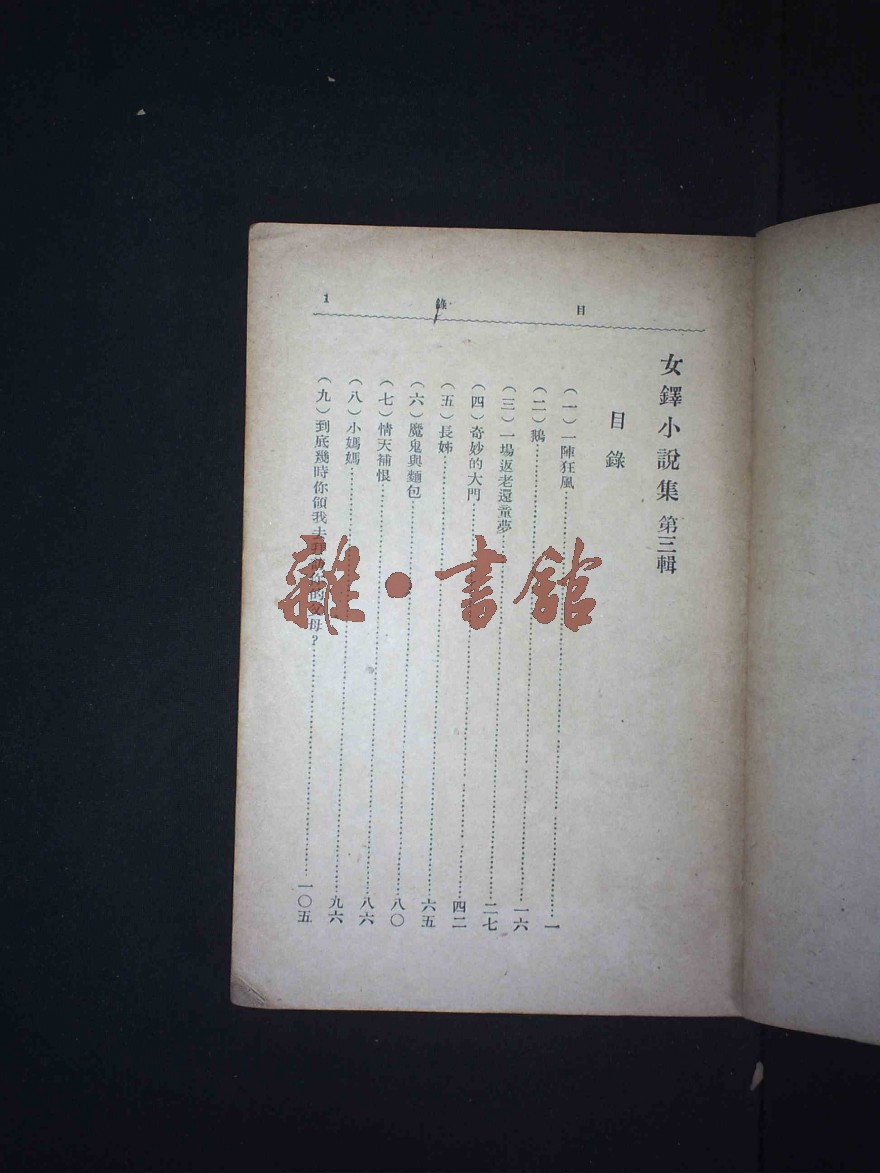 目錄 1
女鐸小說集 第三輯
目錄
(一)一陣狂風 一
(二)鵝 一六
(三)一場返老還童夢 二七
(四)奇妙的大門 四二
(五)長姊 六五
(六)魔鬼與麵包 八〇
(七)情天補恨 八六
(八)小媽媽 九六
(九)到底幾時你領我去 你的父母? 一〇五
雜·書館